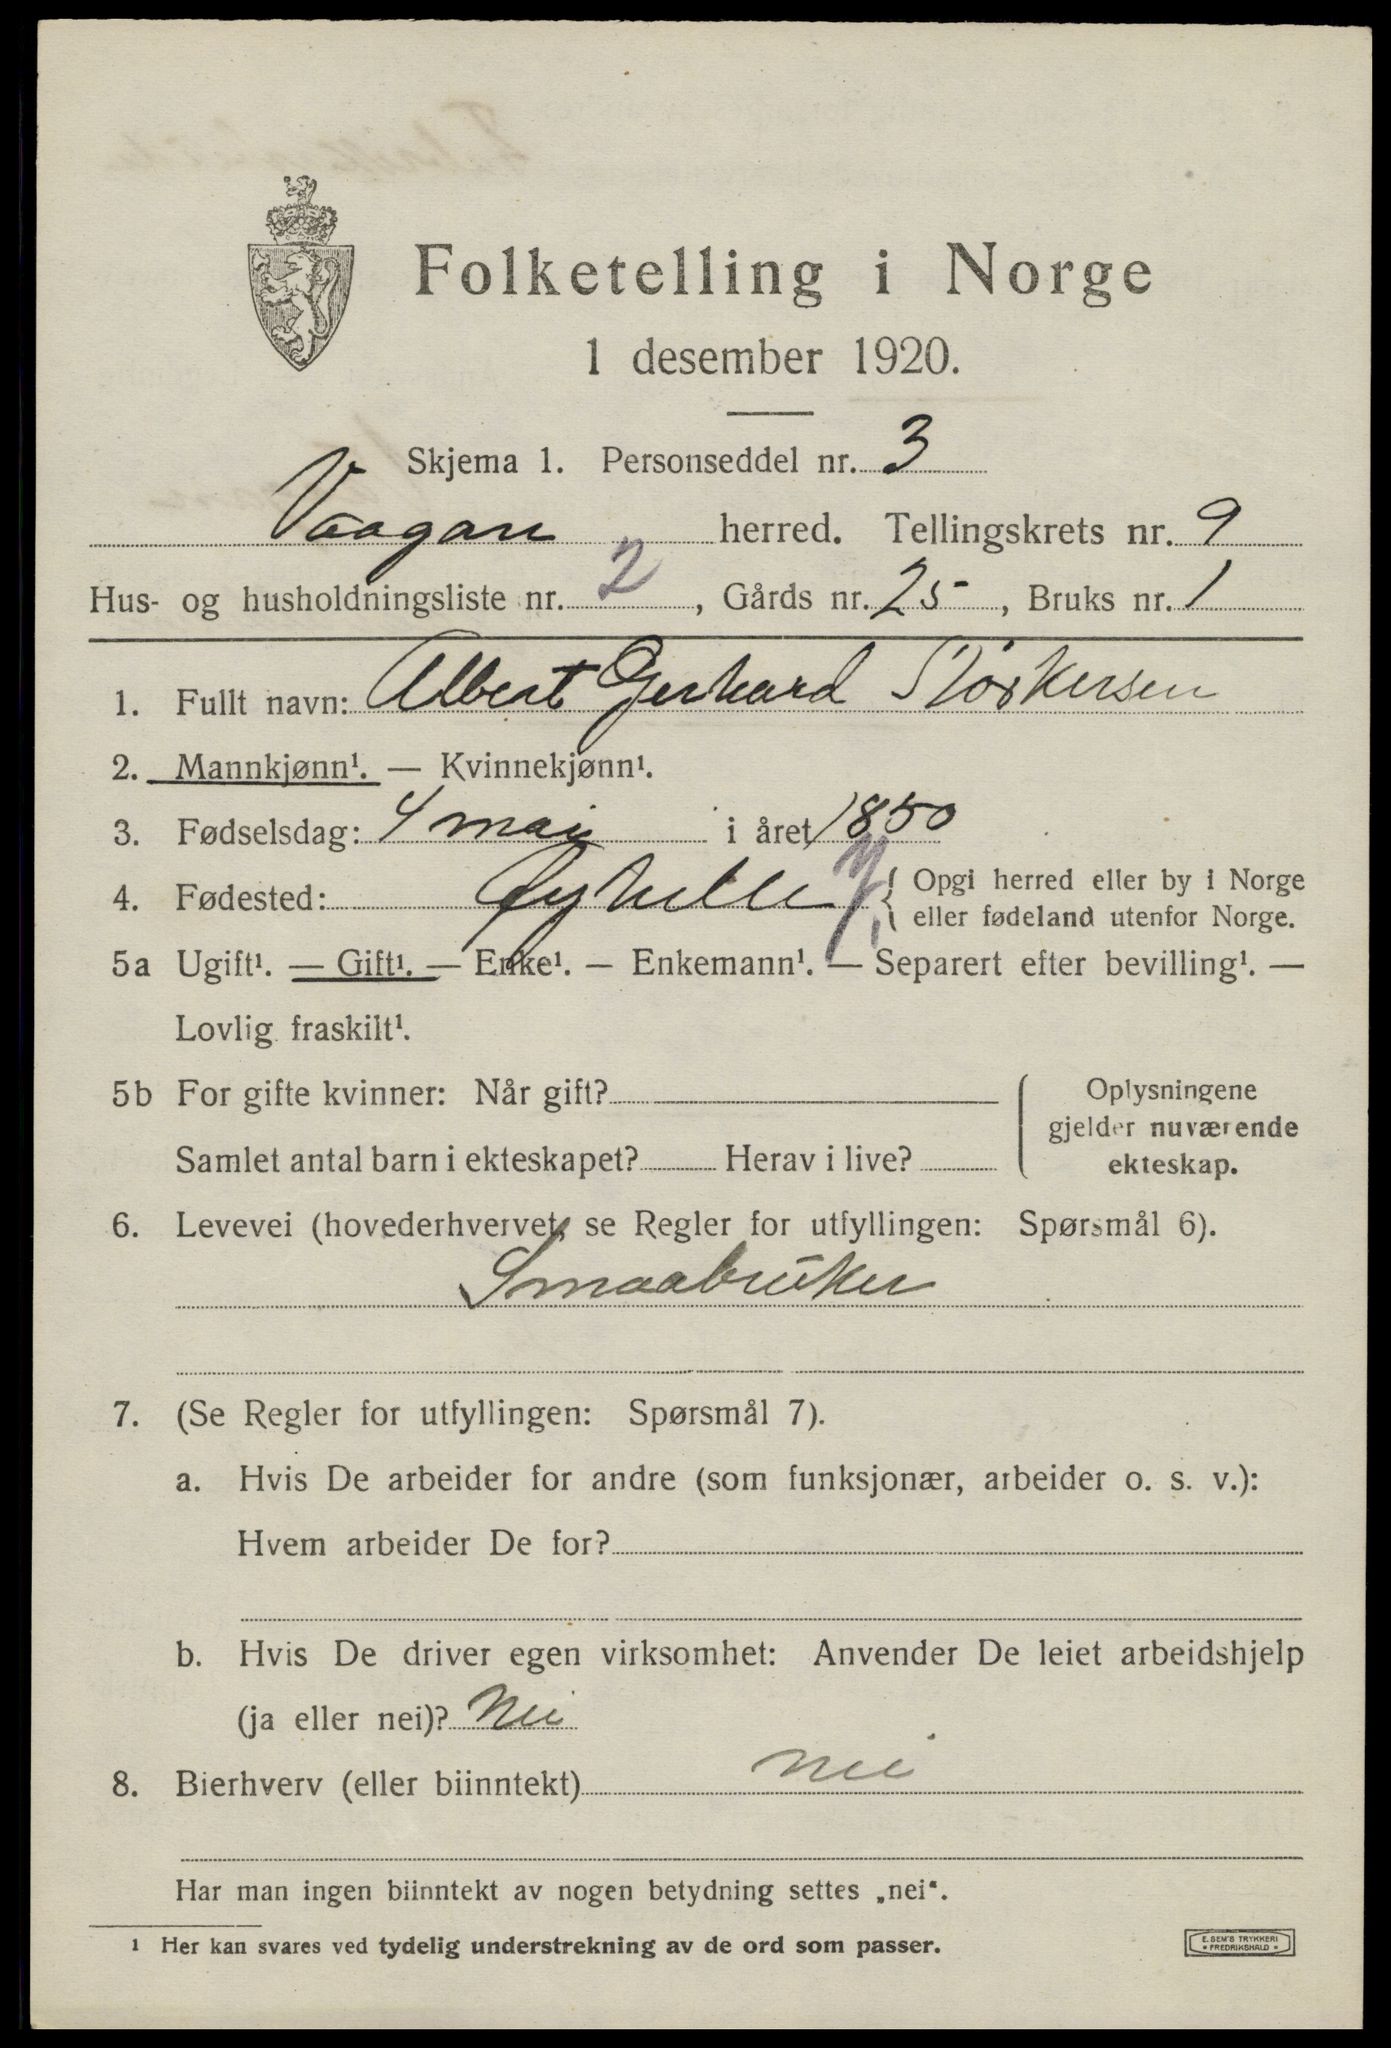 Folketelling i Norge
1 desember 1920.
Skjema 1. Personseddel nr. 3
Vaagan herred. Tellingskrets nr. 9
Hus- og husholdningsliste nr. 2, Gårds nr. 25, Bruks nr. 1
1. Fullt navn: Albert Gerhard Størkersen
2. Mannkjønn¹. — Kvinnekjønn¹.
3. Fødselsdag: 4 mai i året 1850
4. Fødested: { Opgi herred eller by i Norge
eller fødeland utenfor Norge.
5a Ugift¹. — Gift¹. — Enke¹. — Enkemann¹. — Separert efter bevilling¹. —
Lovlig fraskilt¹.
5b For gifte kvinner: Når gift?
Samlet antal barn i ekteskapet? Herav i live?
Oplysningene
gjelder nuværende
ekteskap.
6. Levevei (hovederhvervet, se Regler for utfyllingen: Spørsmål 6).
Smaabruker
7. (Se Regler for utfyllingen: Spørsmål 7).
a. Hvis De arbeider for andre (som funksjonær, arbeider o. s. v.):
Hvem arbeider De for?
b. Hvis De driver egen virksomhet: Anvender De leiet arbeidshjelp
(ja eller nei)? Nei
8. Bierhverv (eller biinntekt) nei
Har man ingen biinntekt av nogen betydning settes „nei“.
¹ Her kan svares ved tydelig understrekning av de ord som passer.
E. SEM'S TRYKKERI
* FREDRIKSHALD *